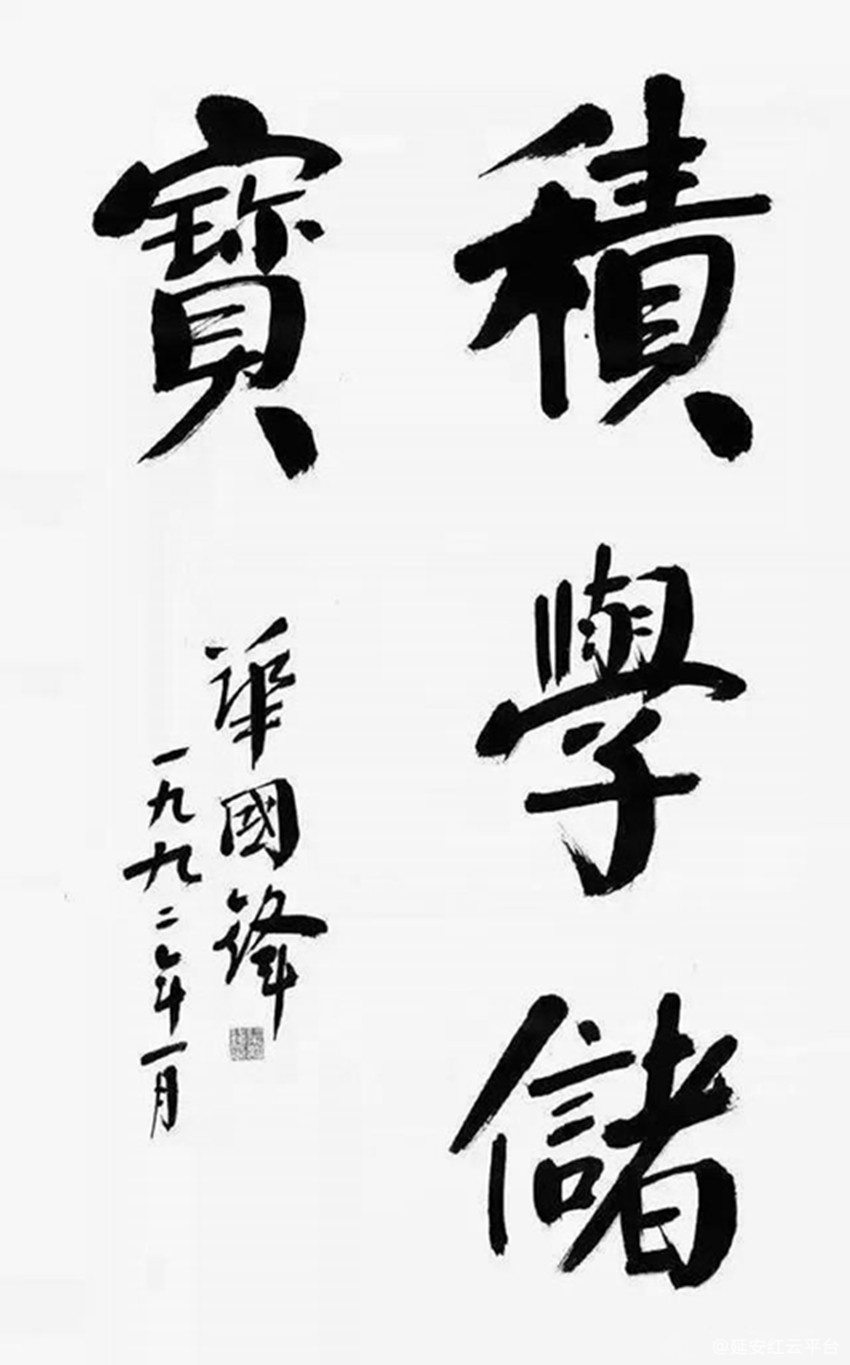 積學儲
寶
華國鋒
一九九二年一月
@延安红云平台